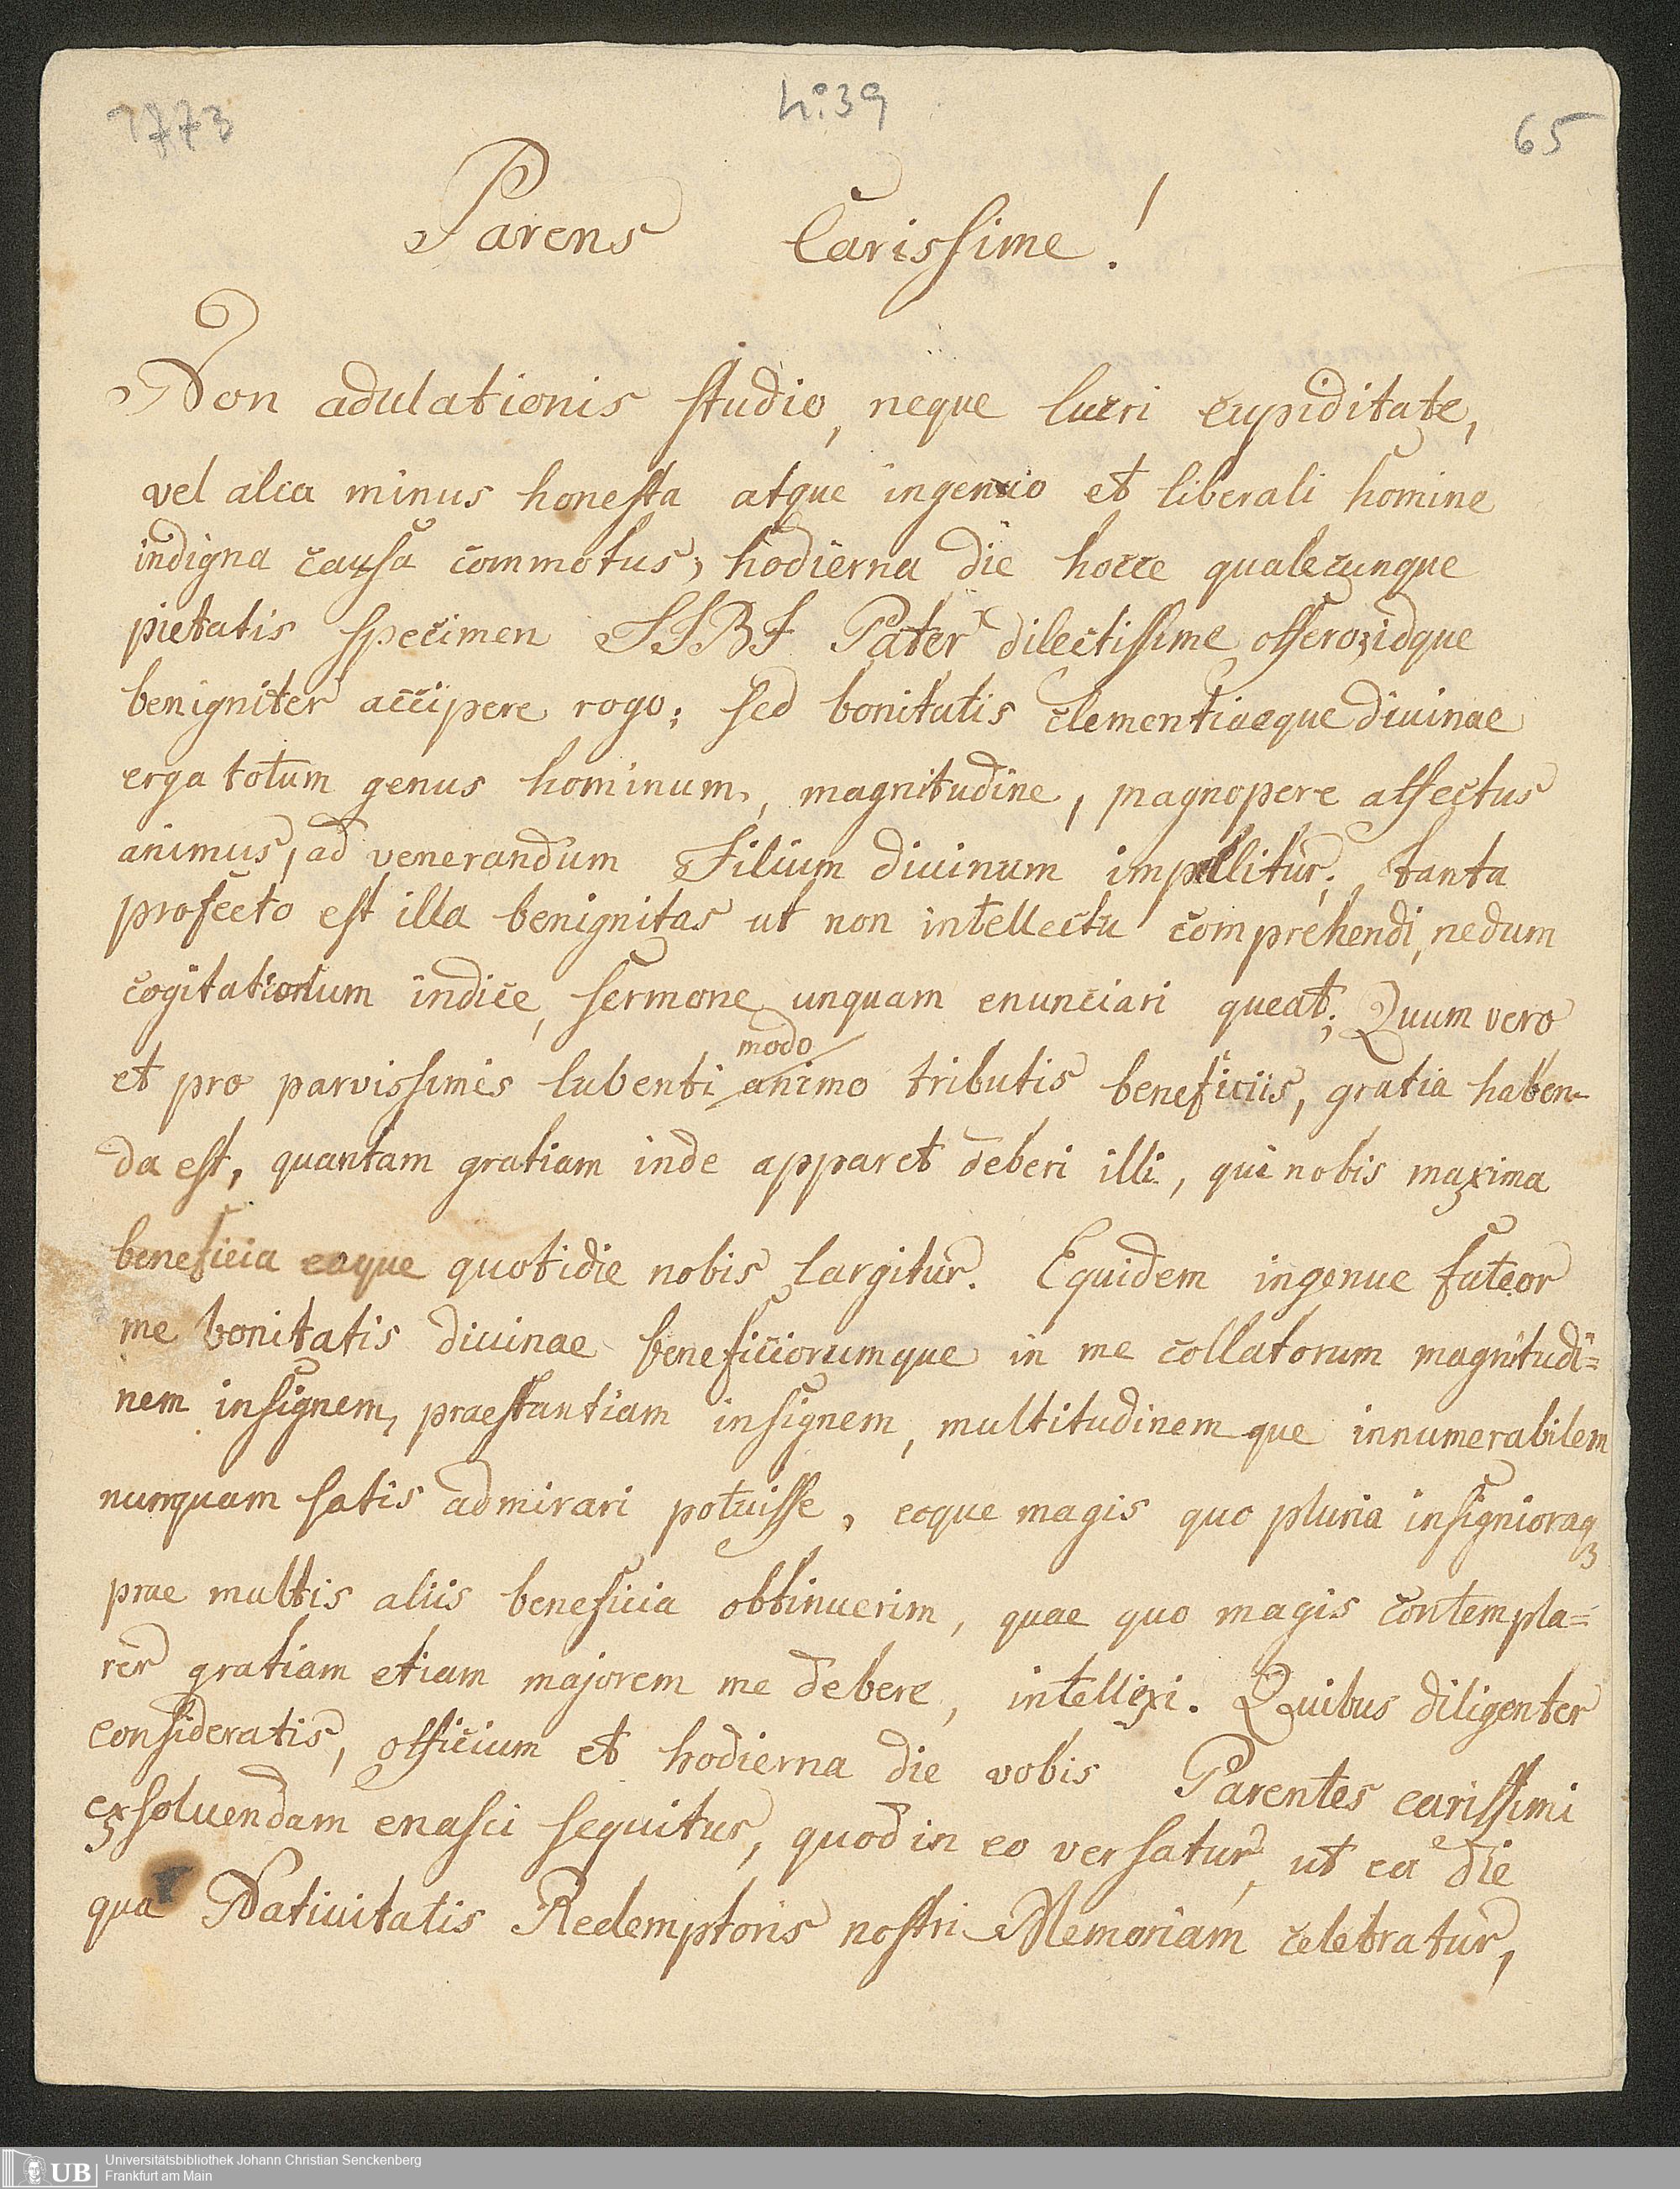 1773
No: 39
65
Parens Carissime!
Non adulationis studio, neque lucri cupiditate,
vel alea minus honesta atque ingenuo et liberali homine
indigna causa commotus, hodierna die hocce qualecunque
pietatis specimen Pater dilectissime offero, idque
benigniter accipere rogo; sed bonitatis clementiaeque diuinae
erga totum genus hominum, magnitudine, magnopere affectus
animus, ad venerandum Filium diuinum impellitur; tanta
profecto est illa benignitas ut non intellectu comprehendi, nedum
cogitationum indice, sermone unquam enunciari queat; Quum vero
modo
et pro parvissimis lubenti animo tributis beneficiis, gratia haben-
da est, quantam gratiam inde apparet deberi illi, qui nobis maxima
beneficia eaque quotidie nobis largitur. Equidem ingenue fateor
me bonitatis diuinae beneficiorumque in me collatorum magnitudi=
nem insignem, praestantiam insignem, multitudinemque innumerabilem
nunquam satis admirari potuisse, eoque magis quo pluria insignioraq
prae multis aliis beneficia obtinuerim, quae quo magis contempla=
rer gratiam etiam majorem me debere, intellexi. Quibus diligenter
consideratis, officium et hodierna die vobis Parentes carissimi
exsoluendam enasci sequitur, quod in eo versatur, ut ea die
qua Natiuitatis Redemptoris nostri Memoriam celebratur,
UB
Universitätsbibliothek Johann Christian Senckenberg
Frankfurt am Main